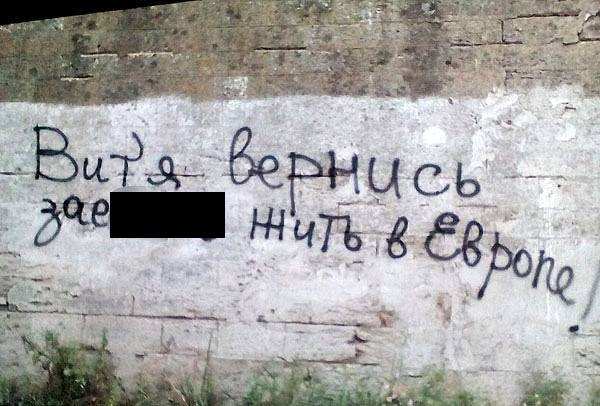 Витя вернись
зае жить в Европе!